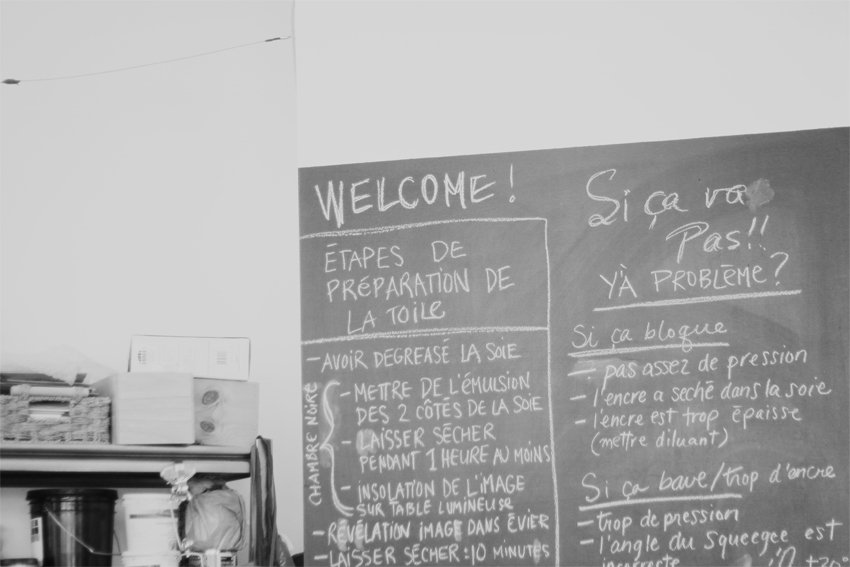 WELCOME!
ÉTAPES DE
PRÉPARATION DE
LA TOILE
- AVOIR DEGREASÉ LA SOIE
CHAMBRE NOIRE
- METTRE DE L'ÉMULSION
DES 2 CÔTÉS DE LA SOIE
- LAISSER SÉCHER
PENDANT 1 HEURE AU MOINS
- INSOLATION DE L'IMAGE
SUR TABLE LUMINEUSE
- RÉVÉLATION IMAGE DANS ÉVIER
- LAISSER SÉCHER : 10 MINUTES
Si ça va
Pas!!
Y'À PROBLÈME?
Si ça bloque
- pas assez de pression
- l'encre a séché dans la soie
- l'encre est trop épaisse
(mettre diluant)
Si ça bave/trop d'encre
- trop de pression
- l'angle du squeegee est
incorrecte